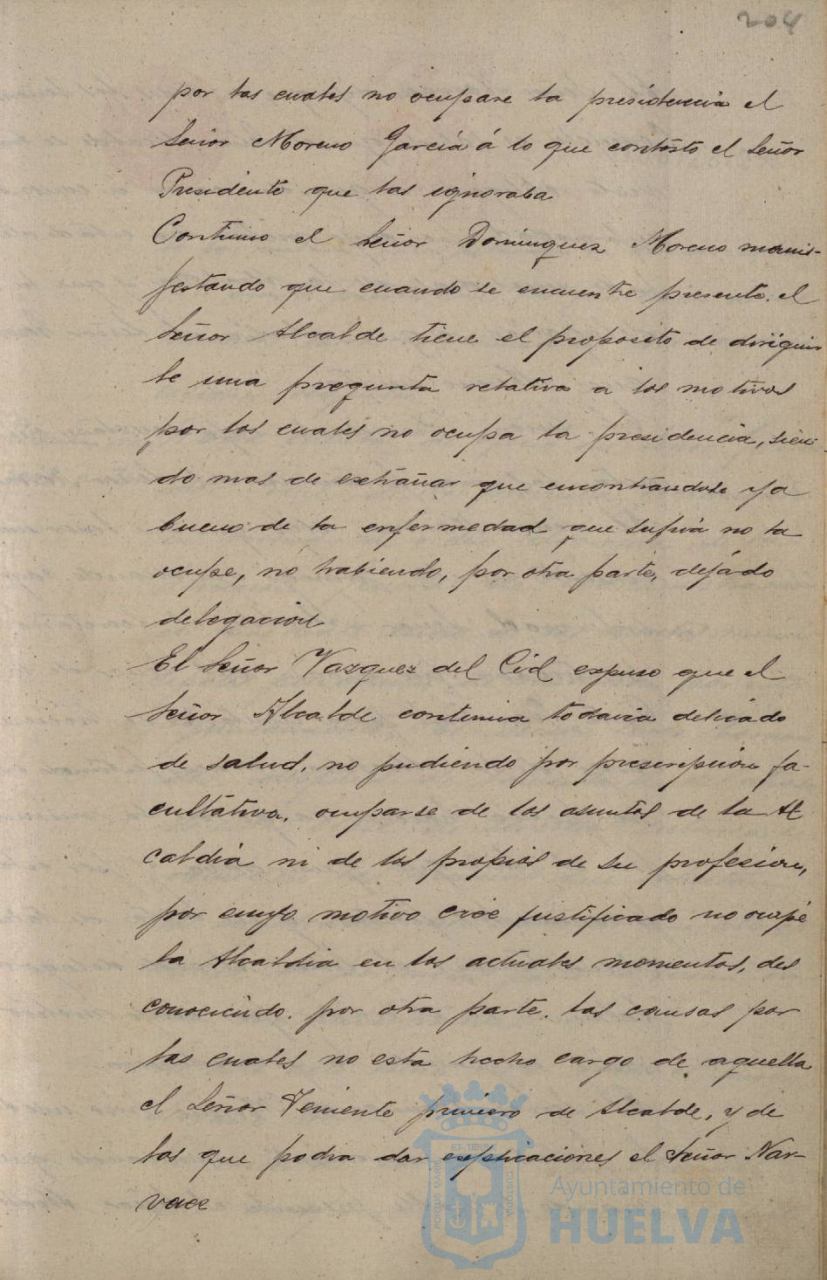 204
por las cuales no ocupare la presidencia el
Señor Moreno García á lo que contestó el Señor
Presidente que las ignoraba
Continuo el Señor Dominguez Moreno manis-
festando que cuando se encuentre presente el
Señor Alcalde tiene el proposito de dirijir
le una pregunta relativa a los motivos
por los cuales no ocupa la presidencia, sien-
do mas de extrañar que encontrandose ya
bueno de la enfermedad que sufria no la
ocupe, no habiendo, por otra parte, dejado
delegacion
El Señor Vazquez del Cid expuso que el
Señor Alcalde continua todavia delicado
de salud, no pudiendo por prescripcion fa-
cultativa, ocuparse de los asuntos de la Al
caldia ni de los propios de su profesion,
por cuyo motivo cree justificado no ocupe
la Alcaldia en los actuales momentos, des
conociendo, por otra parte, las causas por
las cuales no esta hecho cargo de aquella
el Señor Teniente primero de Alcalde, y de
las que podra dar explicaciones el Señor Nar-
vaez
Ayuntamiento de
HUELVA